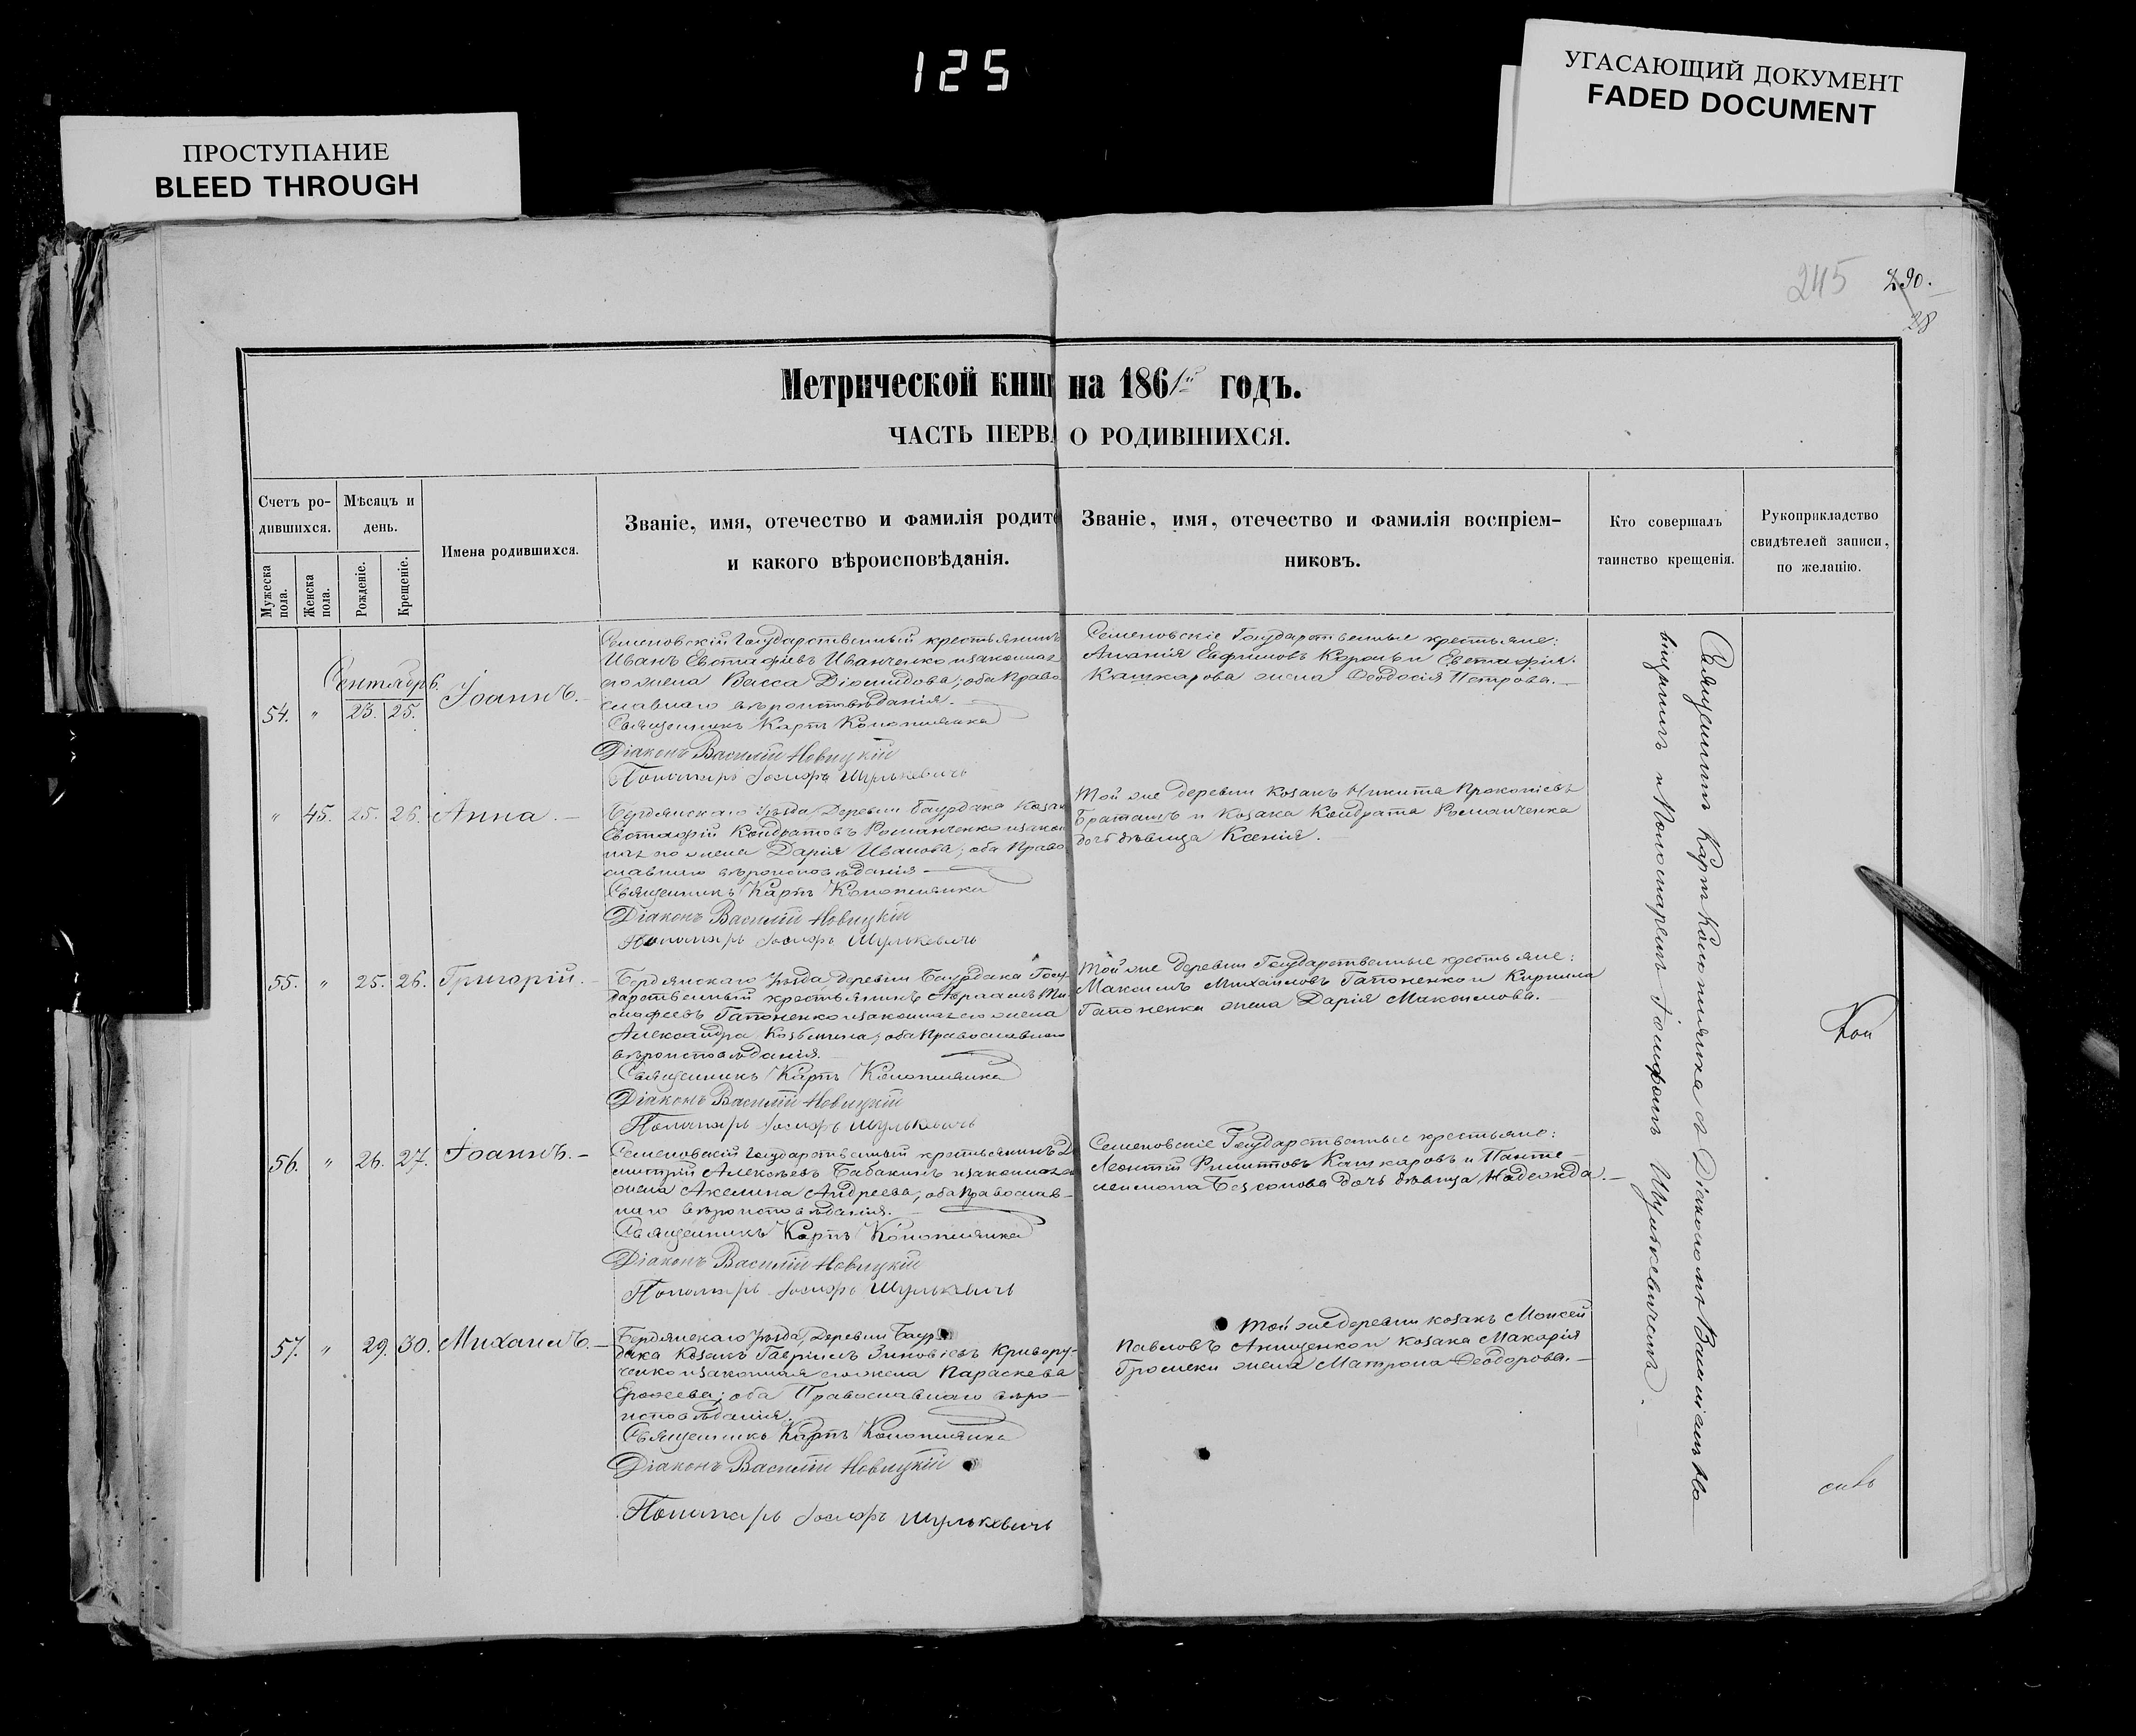 125
ПРОСТУПАНИЕ
BLEED THROUGH
УГАСАЮЩИЙ ДОКУМЕНТ
FADED DOCUMENT
245 290.
28
Метрической книг на 1861й годъ.
ЧАСТЬ ПЕРВА О РОДИВШИХСЯ.
Счетъ ро-
дившихся.
Мужеска
пола.
Женска
пола.
Мѣсяцъ и
день.
Рожденіе.
Крещеніе.
Имена родившихся.
Званіе, имя, отечество и фамилія родите
и какого вѣроисповѣданія.
Званіе, имя, отечество и фамилія воспріем-
никовъ.
Кто совершалъ
таинство крещенія.
Рукоприкладство
свидѣтелей записи,
по желанію.
Сентябрь.
54. " 23. 25. Іоаннъ. –
Семеновскій Государственный крестьянинъ
Иванъ Евстафіевъ Иванченко и законная
его жена Васса Діомидова; оба Право
славнаго вѣроисповѣданія. –
Священникъ Карпъ Конопленка
Діаконъ Василій Новицкій
Пономарь Іосифъ Шулькевичъ
Семеновскіе Государственные крестьяне:
Ананія Евфимовъ Король и Евстафія
Кашкарова жена Ѳеодосія Петрова. –
" 45. 25. 26. Анна. –
Бердянскаго Уѣзда Деревни Баурдака Козак
Евстафій Кондратовъ Романченко и закон
ная его жена Дарія Иванова; оба Право
славнаго вѣроисповѣданія –
Священникъ Карпъ Конопленка
Діаконъ Василій Новицкій
Пономарь Іосифъ Шулькевичъ
Той же деревни Козакъ Никита Прокопіевъ
Браташъ и Козака Кондрата Романченка
дочь дѣвица Ксенія. –
55. " 25. 26. Григорій. –
Бердянскаго Уѣзда Деревни Баурдака Госу-
дарственный крестьянинъ Авраамъ Ти
мофеевъ Гапоненко и законная его жена
Александра Козьмина; оба Православнаго
вѣроисповѣданія.
Священникъ Карпъ Конопленка
Діаконъ Василій Новицкій
Пономарь Іосифъ Шулькевичъ
Той же деревни Государственные крестьяне:
Максимъ Михайловъ Гапоненко и Кирилла
Гапоненки жена Дарія Максимова. –
56. " 26. 27. Іоаннъ. –
Семеновскій Государственный крестьянинъ Ди
митрій Алексѣевъ Бабакинъ и законная его
жена Акелина Андреева; оба Православ-
наго вѣроисповѣданія. –
Священникъ Карпъ Конопленка
Діаконъ Василій Новицкій
Пономарь Іосифъ Шулькевичъ
Семеновскіе Государственные крестьяне:
Леонтій Кашкаровъ и Панте-
леимона дочь дѣвица Надежда. –
57. " 29. 30. Михаилъ. –
Бердянскаго Уѣзда Деревни Баур
дака Козакъ Гавріилъ Зиновіевъ Кривору-
ченко и законная его жена Параскева
Ерофеева; оба Православнаго вѣро-
исповѣданія.
Священникъ Карпъ Конопленка
Діаконъ Василій Новицкій
Пономарь Іосифъ Шулькевичъ
Той же деревни козакъ Моисей
Павловъ Анищенко и козака Макарія
Громеки жена Матрона Ѳеодорова. –
Священникъ Карпъ Конопленка съ Діакономъ Василіемъ Но
вицкимъ и Пономаремъ Іосифомъ Шулькевичемъ. –
Кон